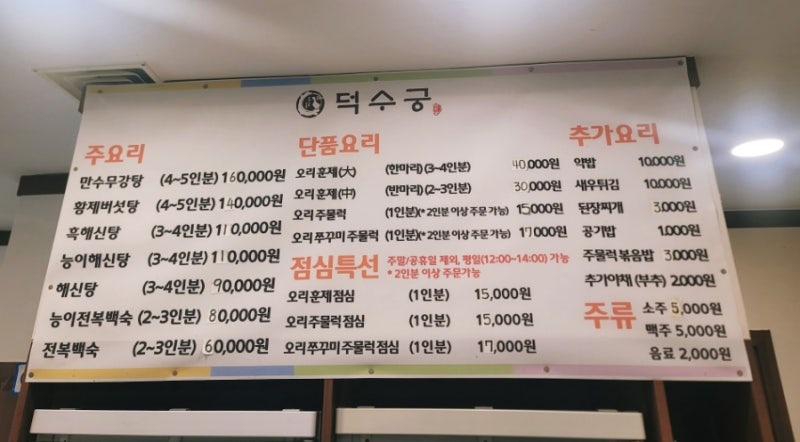 덕수궁
주요리
만수무강탕 (4~5인분) 160,000원
황제버섯탕 (4~5인분) 140,000원
흑해신탕 (3~4인분) 110,000원
능이해신탕 (3~4인분) 110,000원
해신탕 (3~4인분) 90,000원
능이전복백숙 (2~3인분) 80,000원
전복백숙 (2~3인분) 60,000원
단품요리
오리훈제(大) (한마리)(3~4인분) 40,000원
오리훈제(中) (반마리)(2~3인분) 30,000원
오리주물럭 (1인분)(*2인분 이상 주문 가능) 15,000원
오리쭈꾸미주물럭 (1인분)(*2인분 이상 주문 가능) 17,000원
점심특선 주말/공휴일 제외, 평일(12:00~14:00) 가능
*2인분 이상 주문가능
오리훈제점심 (1인분) 15,000원
오리주물럭점심 (1인분) 15,000원
오리쭈꾸미주물럭점심 (1인분) 17,000원
추가요리
약밥 10,000원
새우튀김 10,000원
된장찌개 3,000원
공기밥 1,000원
주물럭볶음밥 3,000원
추가야채 (부추) 2,000원
주류 소주 5,000원
맥주 5,000원
음료 2,000원